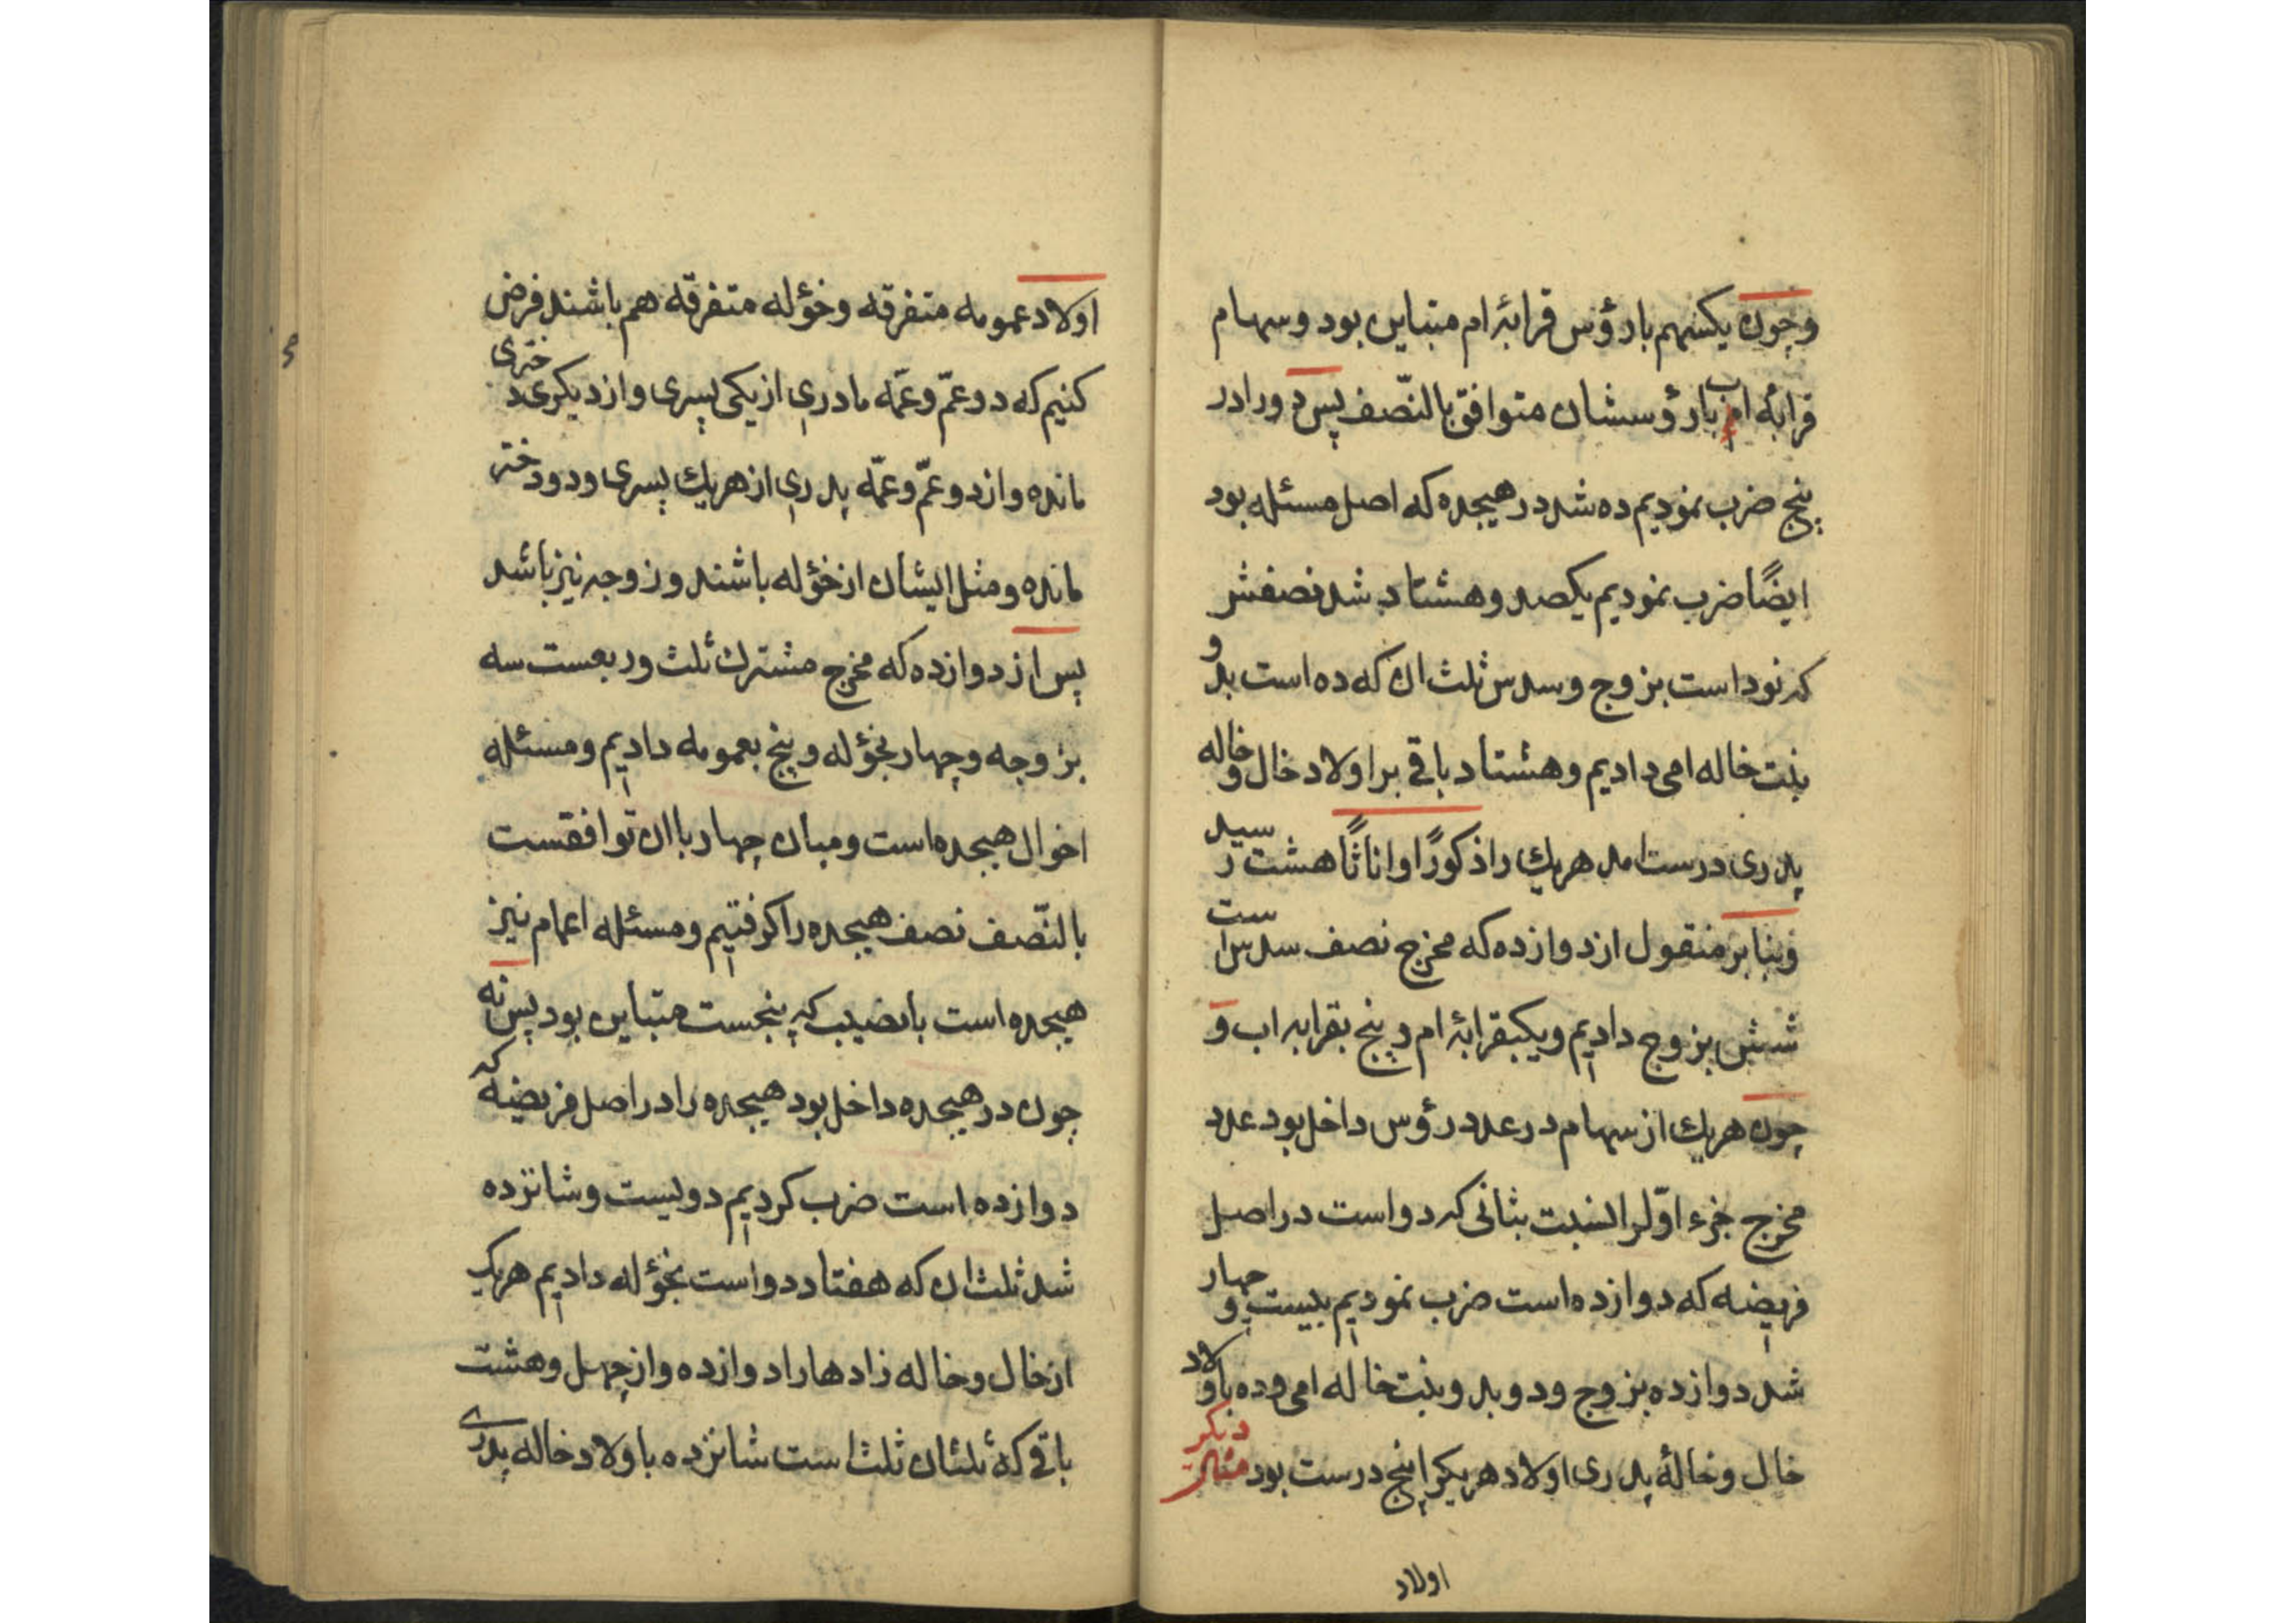 وچون یکسهم بارؤس قرابۀ ام متباین بود وسهام
قرابه اب بارؤسشان متوافق بالنّصف پس دورادر
پنج ضرب نمودیم ده شد در هیجده که اصل مسئله بود
ایضًا ضرب نمودیم یکصد وهشتاد شد نصفش
که نود است بزوج وسدس ثلث ان که ده است بدو
بنت خاله امی دادیم وهشتاد باقی بر اولاد خال وخاله
پدری درست امد هریك را ذکورًا واناثًا هشت رسید
وبنابر منقول از دوازده که مخرج نصف سدس است
شش بزوج دادیم ویکبقرابۀ ام و پنج بقرابه اب و
چون هریك از سهام در عدد رؤس داخل بود عدد
مخرج جزء اوّلرا نسبت بثانی که دو است در اصل
فریضه که دوازده است ضرب نمودیم بیست وچهار
شد دوازده بزوج ودو بدو بنت خاله امی وده باولاد
خال وخالۀ پدری اولاد هریکرا پنج درست بود مثال دیکر
اولاد
اولاد عمومه متفرقه وخؤله متفرقه هم باشند فرض
کنیم که دو عمّ وعمّه مادری از یکی پسری واز دیکری دختری
مانده واز دو عمّ وعمّه پدری از هریك پسری ودو دختر
مانده ومثل ایشان از خؤله باشند وزوجه نیز باشد
پس از دوازده که مخرج مشترك ثلث وربعست سه
بزوجه وچهار بخؤله وپنج بعمومه دادیم ومسئله
اخوال هیجده است ومیان چهار باان توافقست
بالنّصف نصف هیجده را کرفتیم ومسئله اعمام نیز
هیجده است بانصیب که پنجست متباین بود پس نه
چون در هیجده داخل بود هیجده را در اصل فریضه که
دوازده است ضرب کردیم دویست وشانزده
شد ثلث ان که هفتاد ودو است بخؤله دادیم هریك
از خال وخاله زادها را دوازده واز چهل وهشت
باقی که ثلثان ثلث است شانزده باولاد خاله پدری